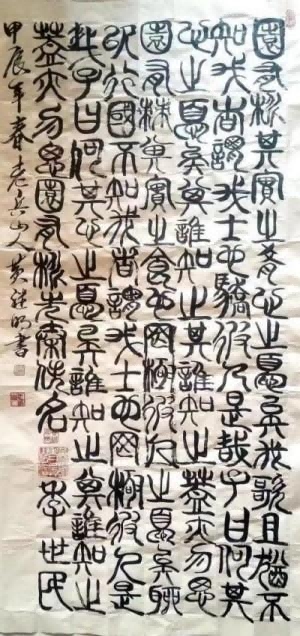 園有桃其實之肴心之憂矣我歌且謠不
知我者謂我士也驕彼人是哉子曰何其
心之憂矣其誰知之其誰知之蓋亦勿思
園有棘其實之食罔極彼之憂矣聊
以行國不知我者謂我士也罔極彼人是
哉子曰何其心之憂矣誰知之其誰知之
蓋亦勿思園有桃先秦佚名 李世民
甲辰年春老兵山人黄继明书